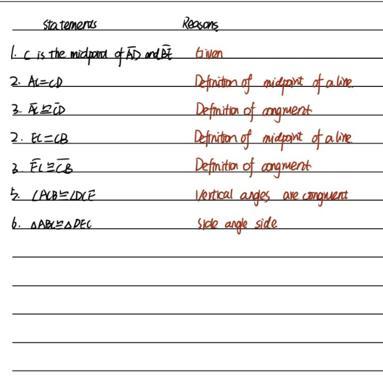 Statements Reasons
1. C is the midpoint of A̅D̅ and B̅E̅ Given
2. AC=CD Definition of midpoint of a line
3. A̅C̅≅C̅D̅ Definition of congruent
2. EC=CB Definition of midpoint of a line
3. E̅C̅≅C̅B̅ Definition of congruent
5. ∠ACB≅∠DCE Vertical angles are congruent
6. △ABC≅△DEC Side angle side